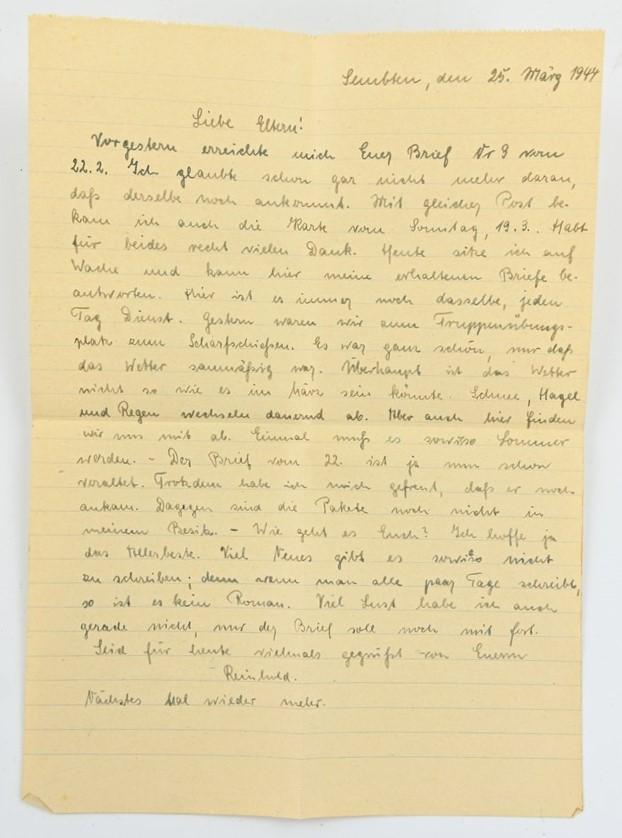 Sembten, den 25. März 1944
Liebe Eltern!
Vorgestern erreichte mich Euer Brief Nr 9 vom
22.2. Ich glaubte schon gar nicht mehr daran,
daß derselbe noch ankommt. Mit gleicher Post be-
kam ich auch die Karte vom Sonntag, 19.3.. Habt
für beides recht vielen Dank. Heute sitze ich auf
Wache und kann hier meine erhaltenen Briefe be-
antworten. Hier ist es immer noch dasselbe, jeden
Tag Dienst. Gestern waren wir zum Truppenübungs-
platz zum Scharfschießen. Es war ganz schön, nur daß
das Wetter saumäßig war. Überhaupt ist das Wetter
nicht so wie es im März sein könnte. Schnee, Hagel
und Regen wechseln dauernd ab. Aber auch hier finden
wir uns mit ab. Einmal muß es sowieso Sommer
werden. - Der Brief vom 22. ist ja nun schon
veraltet. Trotzdem habe ich mich gefreut, daß er noch
ankam. Dagegen sind die Pakete noch nicht in
meinem Besitz. - Wie geht es Euch? Ich hoffe ja
das Allerbeste. Viel Neues gibt es sowieso nicht
zu schreiben; denn wenn man alle paar Tage schreibt,
so ist es kein Roman. Viel Lust habe ich auch
gerade nicht, nur der Brief soll noch mit fort.
Seid für heute vielmals gegrüßt von Eurem
Reinhold.
Nächstes Mal wieder mehr.